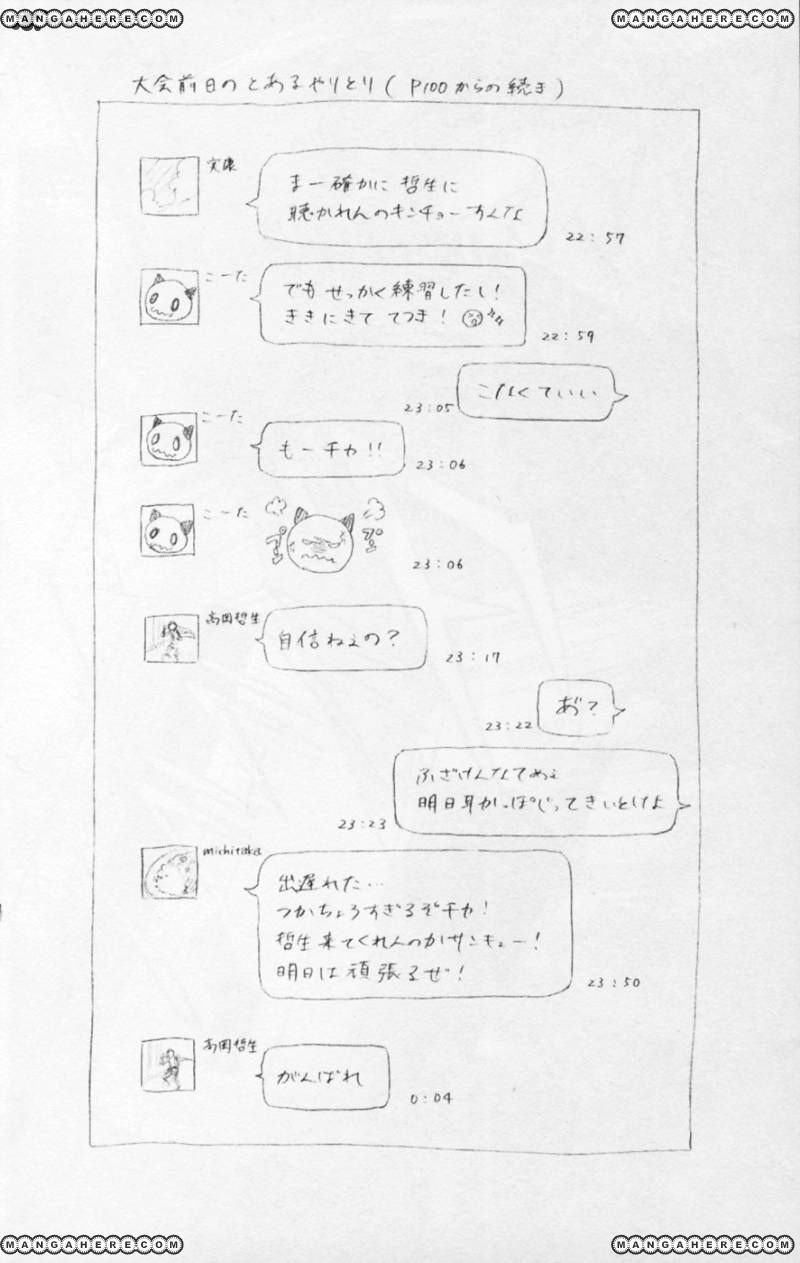 MANGAHERE.COM
MANGAHERE.COM
大会前日のとあるやりとり( P100からの続き)
実康
まー確かに 哲生に
聴かれんのキンチョーすんな
22:57
こーた
でも せっかく練習したし!
ききにきて てつき!
22:59
こなくていい
23:05
こーた
もーチカ!!
23:06
こーた
プンプン
23:06
高岡哲生
自信ねェの?
23:17
あ゛?
23:22
ふざけんなてめェ
明日耳かっぽじってきいとけよ
23:23
michitaka
出遅れた…
つかちょろすぎるぞチカ!
哲生来てくれんのかサンキュー!
明日は頑張るぜ!
23:50
高岡哲生
がんばれ
0:04
MANGAHERE.COM
MANGAHERE.COM